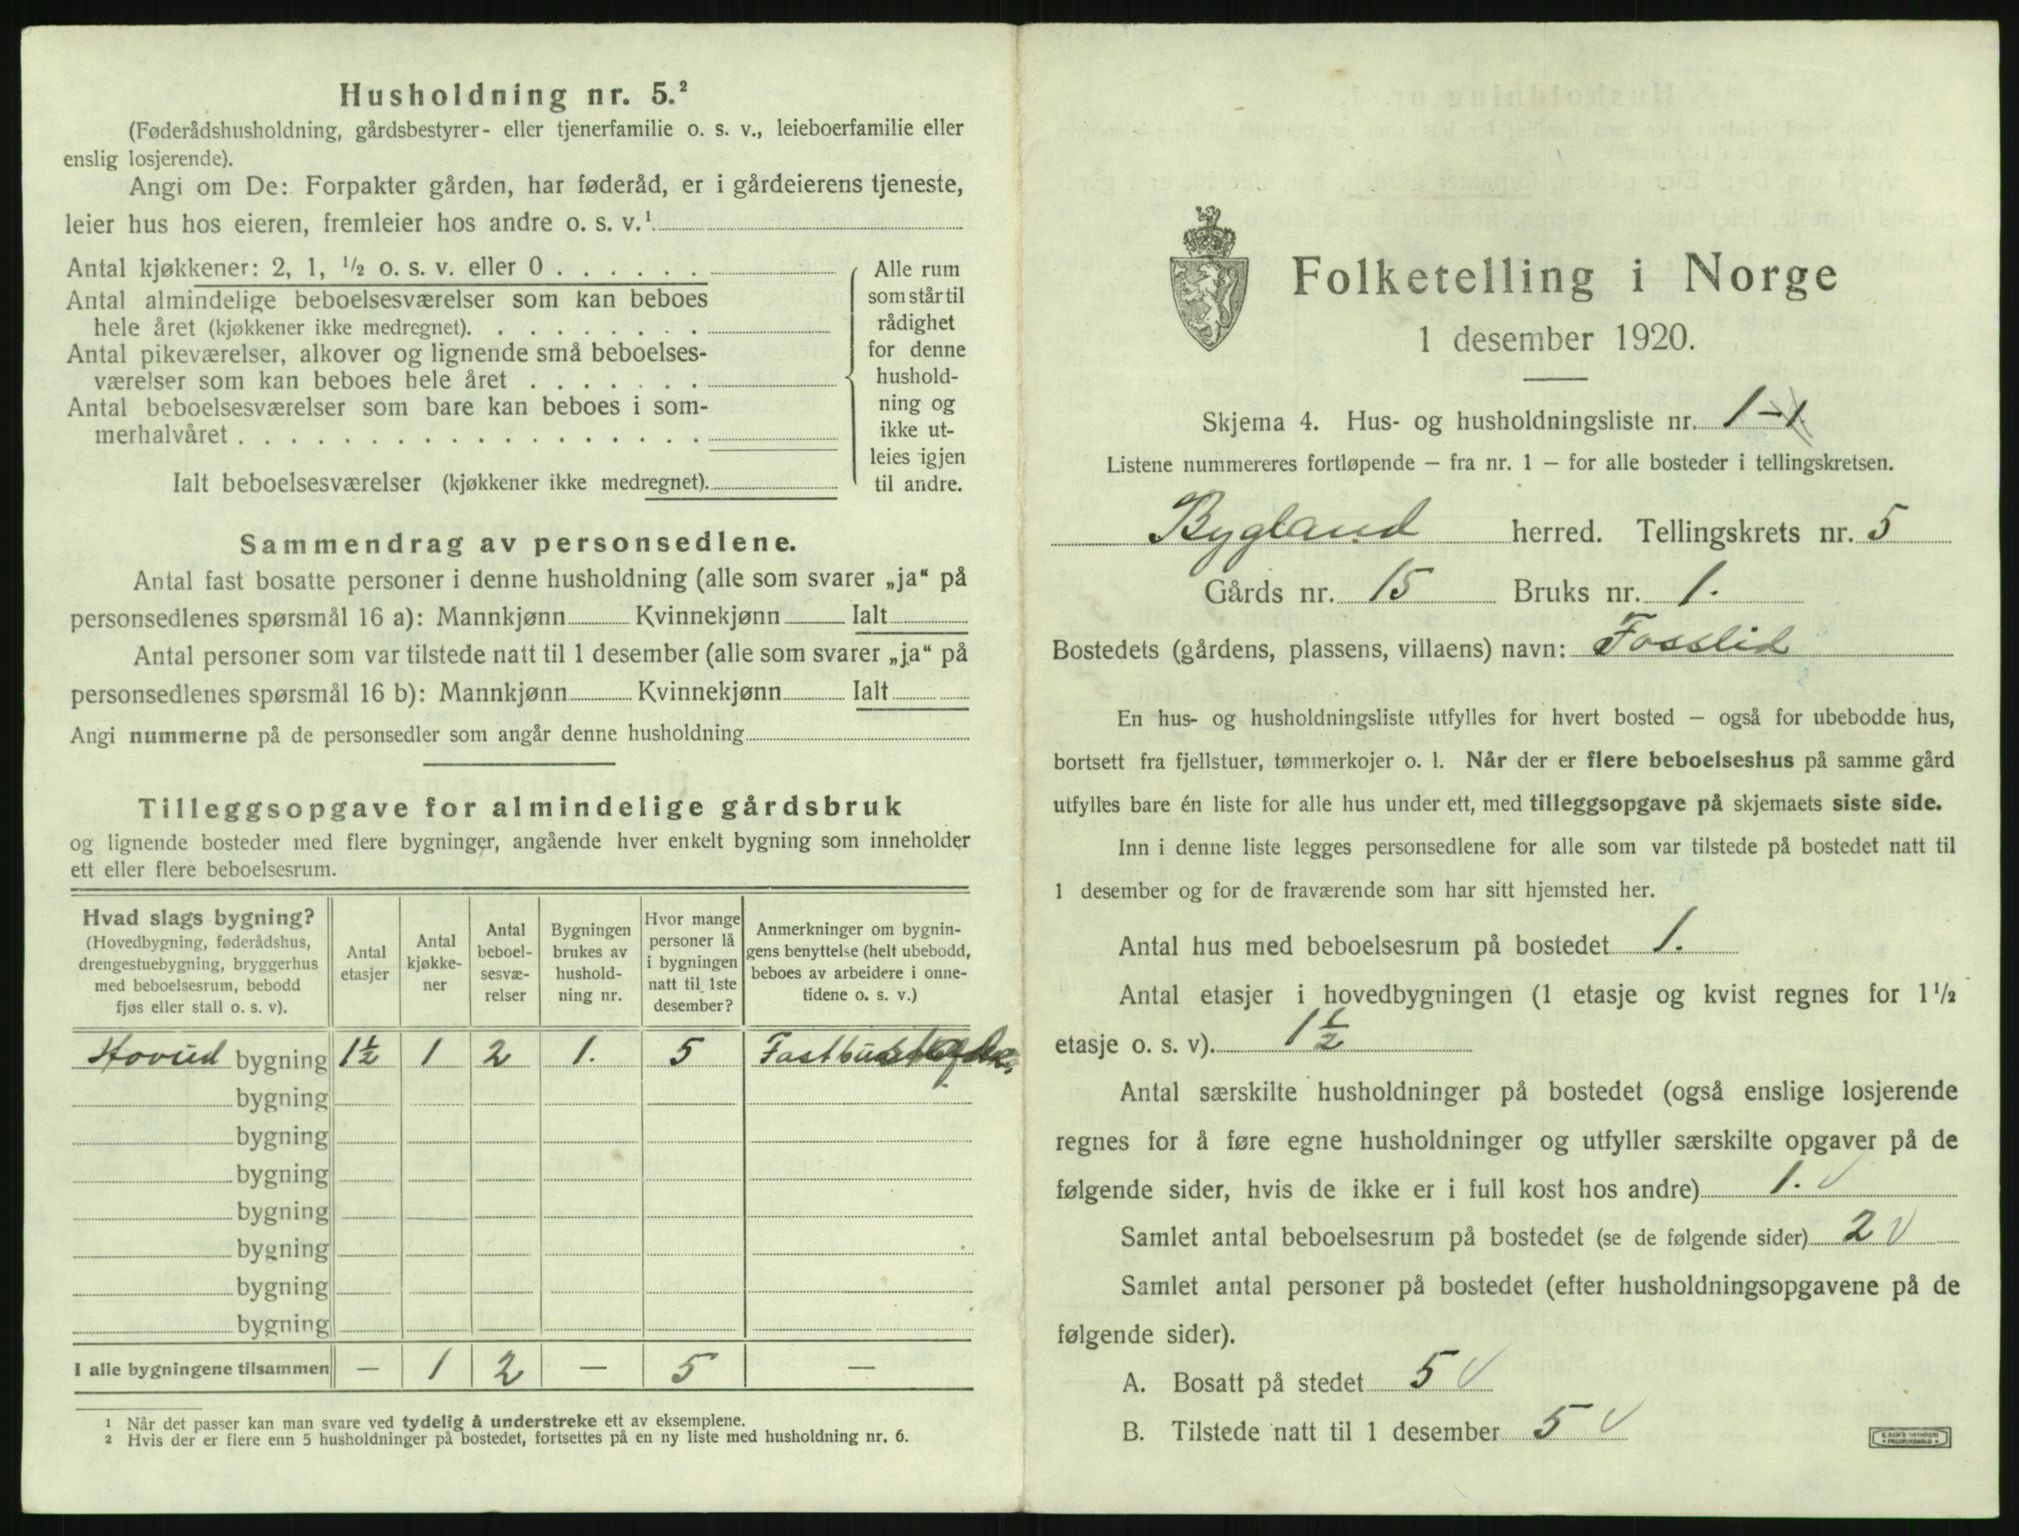 Husholdning nr. 5.²
(Føderådshusholdning, gårdsbestyrer- eller tjenerfamilie o. s. v., leieboerfamilie eller
enslig losjerende).
Angi om De: Forpakter gården, har føderåd, er i gårdeierens tjeneste,
leier hus hos eieren, fremleier hos andre o. s. v.¹
Antal kjøkkener: 2, 1, ½ o. s. v. eller 0 . . . . . .
Antal almindelige beboelsesværelser som kan beboes
hele året (kjøkkener ikke medregnet). . . . . . . . .
Antal pikeværelser, alkover og lignende små beboelses-
værelser som kan beboes hele året . . . . . . .
Antal beboelsesværelser som bare kan beboes i som-
merhalvåret . . . . . . . . . . . . . . . . . .
Ialt beboelsesværelser (kjøkkener ikke medregnet).
Alle rum
som står til
rådighet
for denne
hushold-
ning og
ikke ut-
leies igjen
til andre.
Sammendrag av personsedlene.
Antal fast bosatte personer i denne husholdning (alle som svarer „ja“ på
personsedlenes spørsmål 16 a): Mannkjønn Kvinnekjønn Ialt
Antal personer som var tilstede natt til 1 desember (alle som svarer „ja“ på
personsedlenes spørsmål 16 b): Mannkjønn Kvinnekjønn Ialt
Angi nummerne på de personsedler som angår denne husholdning
Tilleggsopgave for almindelige gårdsbruk
og lignende bosteder med flere bygninger, angående hver enkelt bygning som inneholder
ett eller flere beboelsesrum.
Hvad slags bygning?
(Hovedbygning, føderådshus,
drengestuebygning, bryggerhus
med beboelsesrum, bebodd
fjøs eller stall o. s. v).
Antal
etasjer
Antal
kjøkke-
ner
Antal
beboel-
sesvæ-
relser
Bygningen
brukes av
hushold-
ning nr.
Hvor mange
personer lå
i bygningen
natt til 1ste
desember?
Anmerkninger om bygnin-
gens benyttelse (helt ubebodd,
beboes av arbeidere i onne-
tidene o. s. v.)
Hovud bygning 1½ 1 2 1. 5
bygning
bygning
bygning
bygning
bygning
bygning
bygning
I alle bygningene tilsammen — 1 2 — 5 —
¹ Når det passer kan man svare ved tydelig å understreke ett av eksemplene.
² Hvis der er flere enn 5 husholdninger på bostedet, fortsettes på en ny liste med husholdning nr. 6.
Folketelling i Norge
1 desember 1920.
Skjema 4. Hus- og husholdningsliste nr. 1 - 1
Listene nummereres fortløpende – fra nr. 1 – for alle bosteder i tellingskretsen.
Bygland herred. Tellingskrets nr. 5
Gårds nr. 15 Bruks nr. 1.
Bostedets (gårdens, plassens, villaens) navn: Fosslid
En hus- og husholdningsliste utfylles for hvert bosted – også for ubebodde hus,
bortsett fra fjellstuer, tømmerkojer o. l. Når der er flere beboelseshus på samme gård
utfylles bare én liste for alle hus under ett, med tilleggsopgave på skjemaets siste side.
Inn i denne liste legges personsedlene for alle som var tilstede på bostedet natt til
1 desember og for de fraværende som har sitt hjemsted her.
Antal hus med beboelsesrum på bostedet 1.
Antal etasjer i hovedbygningen (1 etasje og kvist regnes for 1½
etasje o. s. v). 1½
Antal særskilte husholdninger på bostedet (også enslige losjerende
regnes for å føre egne husholdninger og utfyller særskilte opgaver på de
følgende sider, hvis de ikke er i full kost hos andre) 1. √
Samlet antal beboelsesrum på bostedet (se de følgende sider) 2 √
Samlet antal personer på bostedet (efter husholdningsopgavene på de
følgende sider).
A. Bosatt på stedet 5 √
B. Tilstede natt til 1 desember 5 √